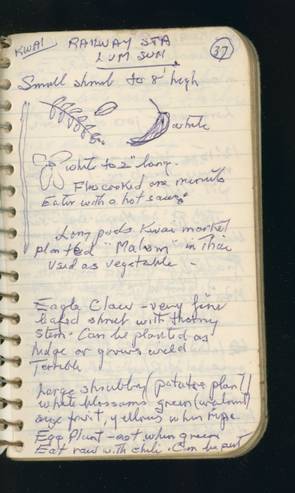 KWAI RAILWAY STA 37
LUM SUM
Small shrub to 8' high
white
white to 2" long.
cooked one minute
Eaten with a hot sauce
Long pods Kwai market
planted "Malom" in Thai
Used as vegetable -
Eagle Claw - very fine
leafed shrub with thorny
stem. Can be planted as
hedge or grows wild
Terrible
Large shrubby (potatoe plant)
white blossoms green (walnut)
size fruit, yellow when ripe
Egg Plant - eat when green
Eat raw with chili. Can be put